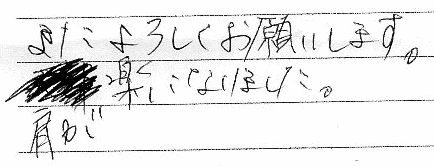 またよろしくお願いします。
楽になりました。
肩が